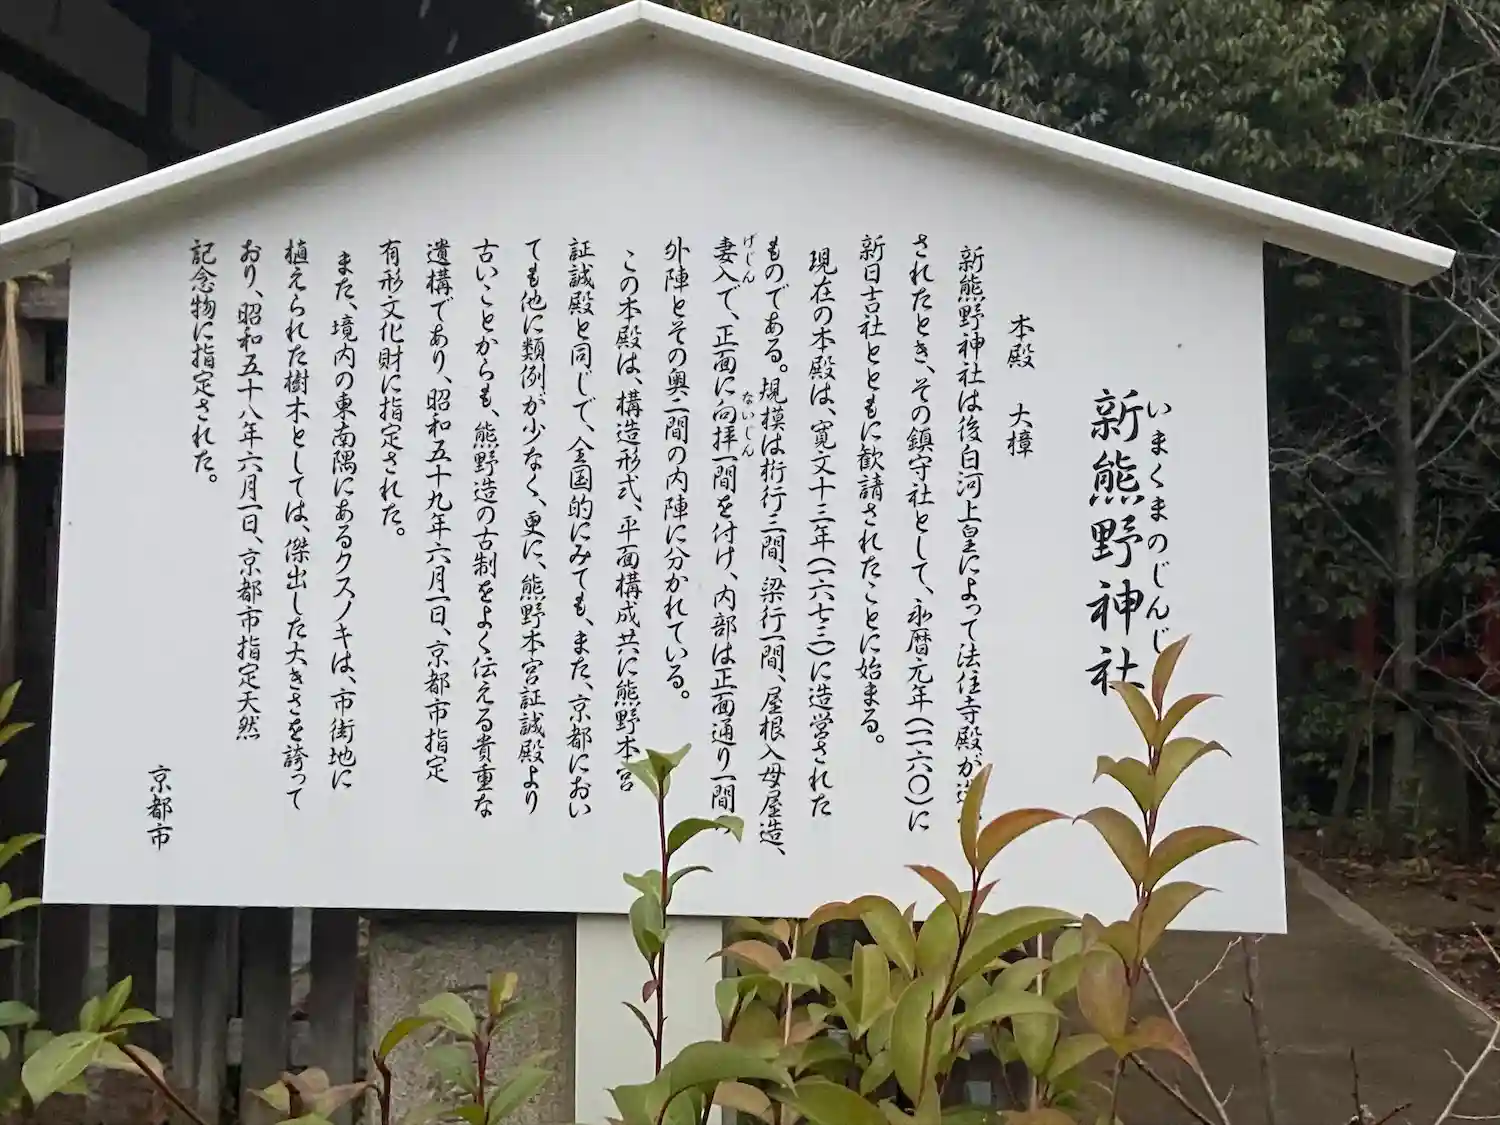 いまくまのじんじ
新熊野神社
本殿 大樟
新熊野神社は後白河上皇によって法住寺殿が造
されたとき、その鎮守社として、永暦元年(一一六〇)に
新日吉社とともに歓請されたことに始まる。
現在の本殿は、寛文十三年(一六七三)に造営された
ものである。規模は桁行三間、梁行一間、屋根入母屋造、
げじん ないじん
妻入で、正面に向拝一間を付け、内部は正面通り一間
外陣とその奥二間の内陣に分かれている。
この本殿は、構造形式、平面構成共に熊野本宮
証誠殿と同じで、全国的にみても、また、京都におい
ても他に類例が少なく、更に、熊野本宮証誠殿より
古いことからも、熊野造の古制をよく伝える貴重な
遺構であり、昭和五十九年六月一日、京都市指定
有形文化財に指定された。
また、境内の東南隅にあるクスノキは、市街地に
植えられた樹木としては、傑出した大きさを誇って
おり、昭和五十八年六月一日、京都市指定天然
記念物に指定された。
京都市